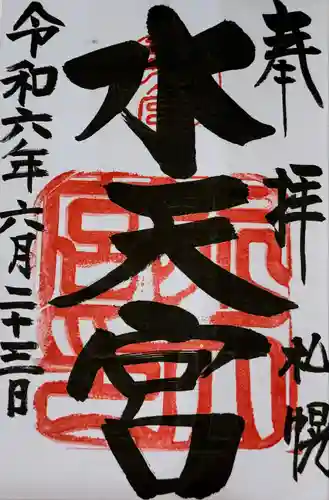 奉拝 札幌
水天宮
令和六年六月二十三日